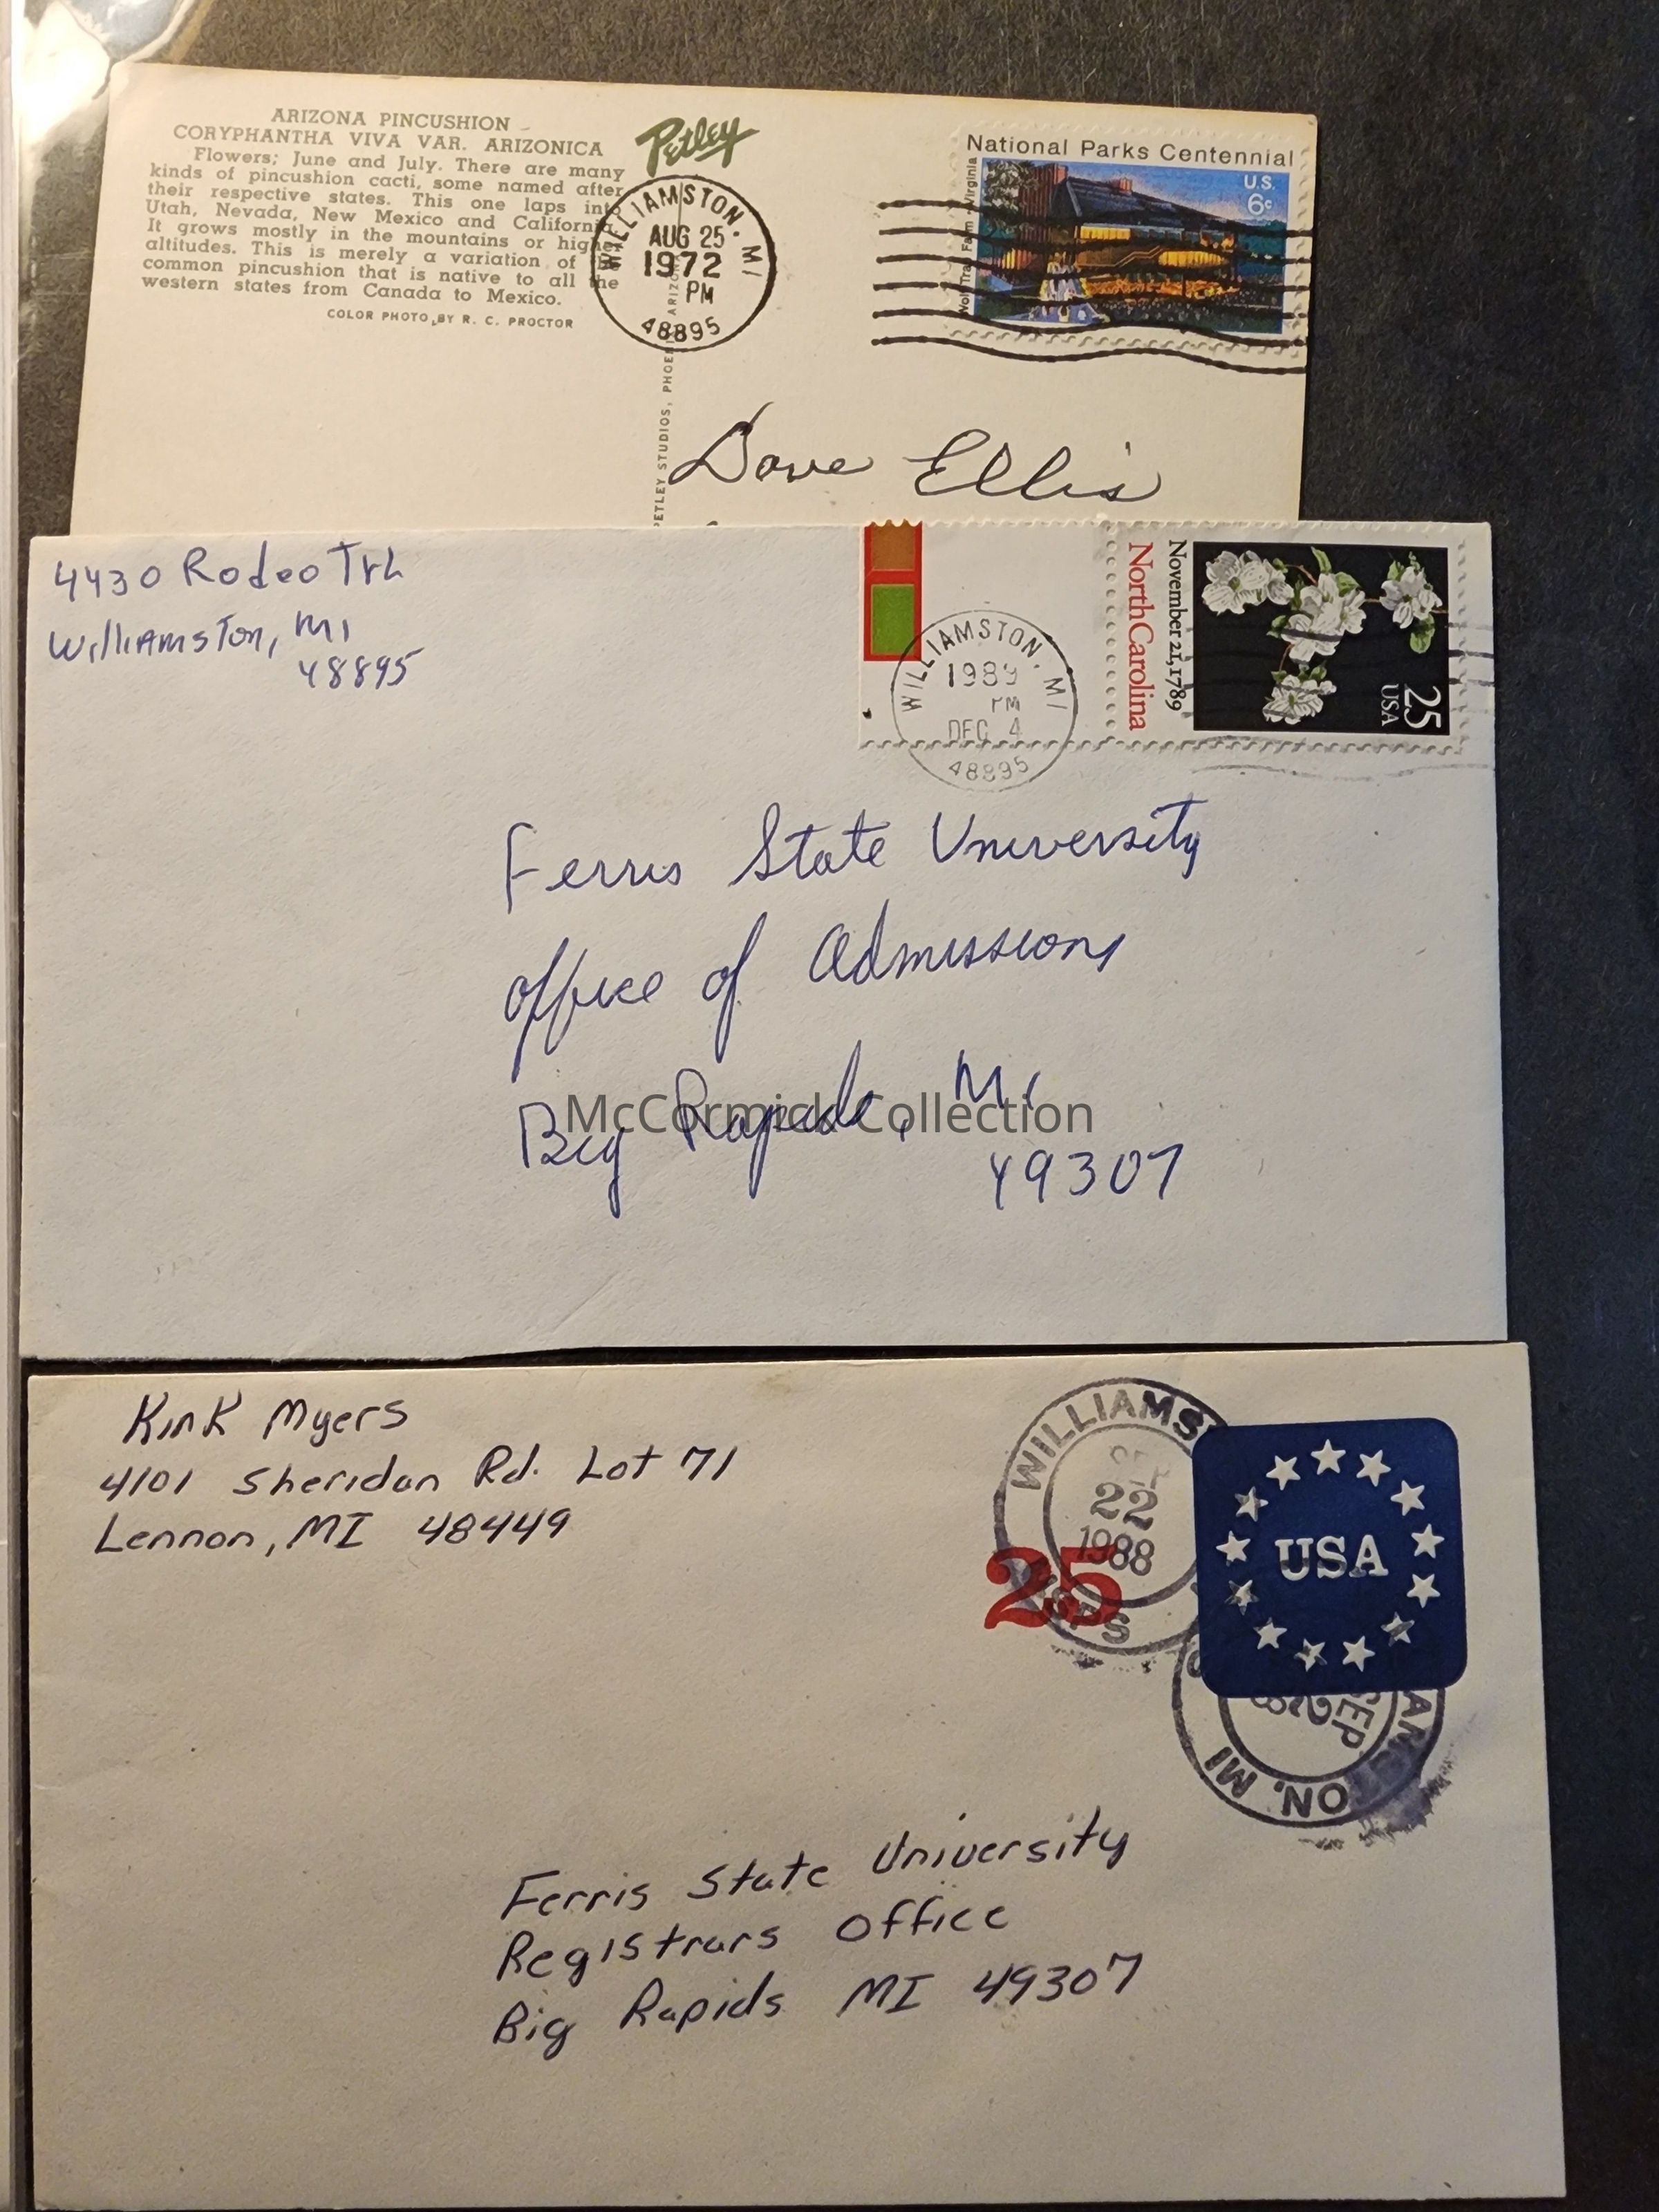 ARIZONA PINCUSHION
CORYPHANTHA VIVA VAR. ARIZONICA
Flowers; June and July. There are many
kinds of pincushion cacti, some named after
their respective states. This one laps into
Utah, Nevada, New Mexico and California.
It grows mostly in the mountains or higher
altitudes. This is merely a variation of
common pincushion that is native to all the
western states from Canada to Mexico.
COLOR PHOTO BY R. C. PROCTOR
Petley
WILLIAMSTON, MI
AUG 25
1972
PM
48895
National Parks Centennial
U.S.
6c
Wolf Trap Farm, Virginia
PETLEY STUDIOS, PHOENIX, ARIZONA
Dave Ellis
4430 Rodeo Trl
Williamston, MI
48895
WILLIAMSTON, MI
1989
PM
DEC 4
48895
November 21, 1789
North Carolina
25
USA
Ferris State University
office of Admissions
Big Rapids, Mi
49307
McCormick Collection
Kink Myers
4101 Sheridan Rd. Lot 71
Lennon, MI 48449
WILLIAMS
22
1988
USPS
25
USA
SEP
22
ON, MI
Ferris State University
Registrars Office
Big Rapids MI 49307